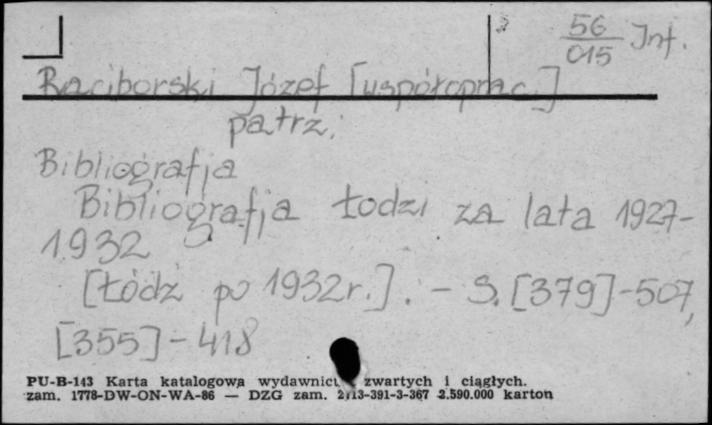 56
015 Inf.
Raciborski Józef [współoprac.]
patrz:
Bibliografja
Bibliografja Łodzi za lata 1927-
1932
[Łódź po 1932r.]. - S. [379]-507,
[355]-418
PU-B-143 Karta katalogowa wydawnict zwartych i ciągłych.
zam. 1778-DW-ON-WA-86 — DZG zam. 2113-391-3-367 2.590.000 karton